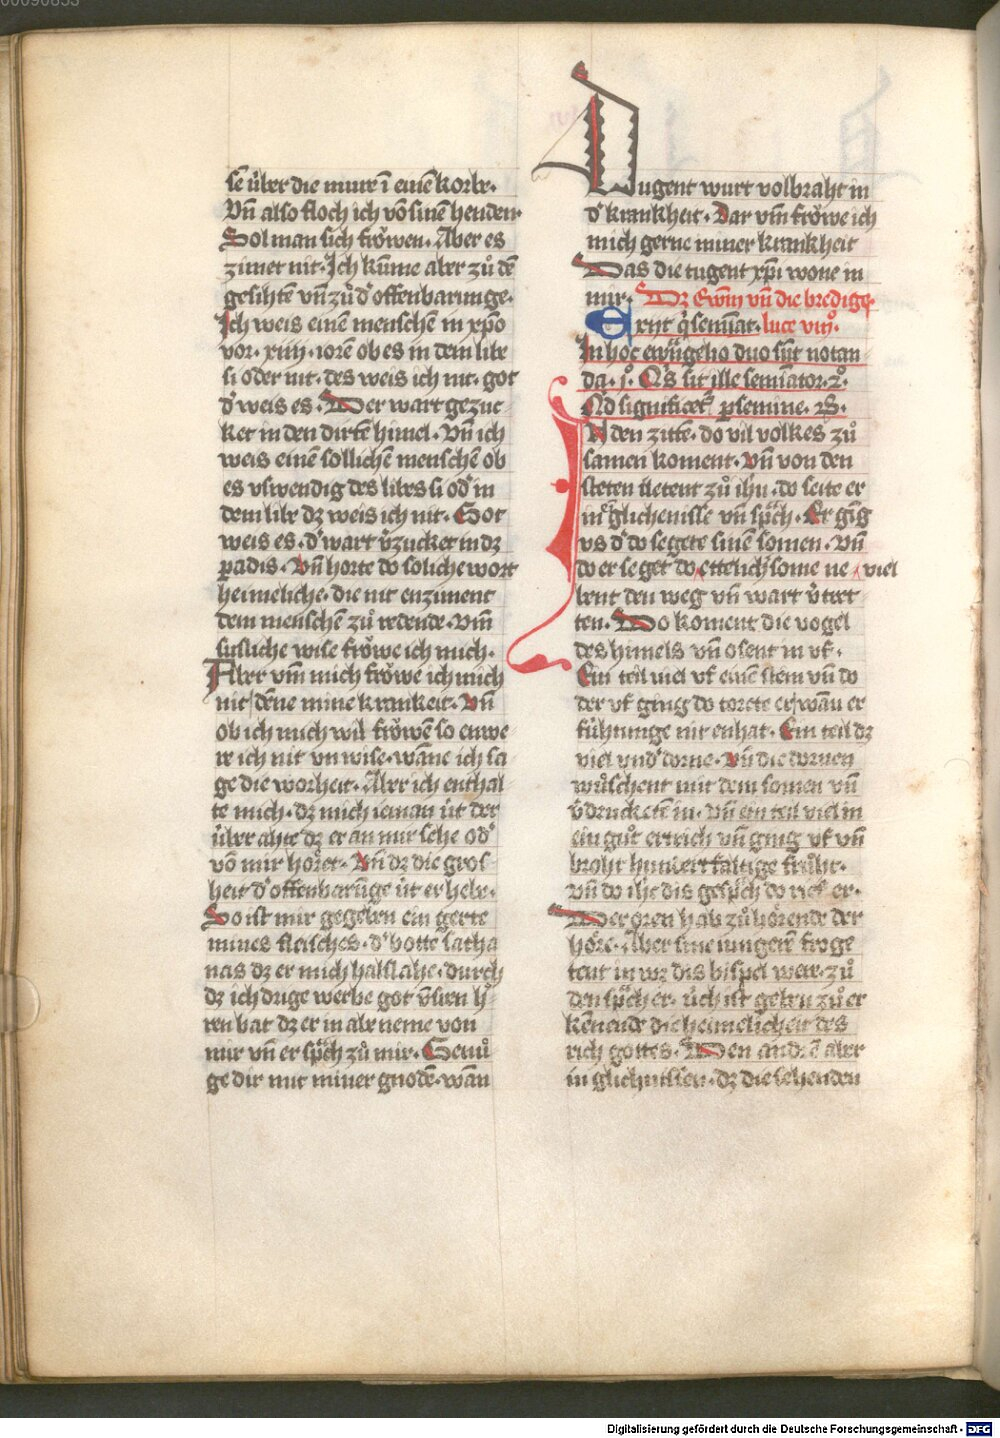 00096853
se úber die mure ī einē korbe·
Vn̄ also floch ich vō sinē henden·
Sol man sich frȯwen· Aber es
zimet nit· Ich kūme aber zů dē
gesihtē vn̄ zů d' offenbarunge·
Ich weis einē menschē in xp̄o
vor· xiiij· iorē ob es in dem libe
si oder nit· des weis ich nit· got
d' weis es· Der wart gezuc-
ket in den dirtē himel· Vn̄ ich
weis einē sollichē menschē ob
es vswendig des libes si od' in
dem libe dz weis ich nit· Got
weis es· d' wart v̓zucket in dz
ꝑadis· Vn̄ horte do soliche wort
heimeliche· die nit enziment
dem menschē zů redende· Vm̄
susliche wise frȯwe ich mich·
Aber vm̄ mich frȯwe ich mich
nit denne mine krankeit· Vn̄
ob ich mich wil frȯwen so enwe-
re ich nit vnwise· wāne ich sa
ge die worheit· Aber ich enthal
te mich· dz mich ieman út der
úber ahte dz er an mir sehe od'
vō mir hȯret· Vn̄ dz die gros
heit d' offenbarūge út erhebe·
So ist mir gegeben ein gerte
mines fleisches· d' botte satha
nas dz er mich halslahe· durch
dz ich drige werbe got v̓nsren h'-
ren bat dz er in abe neme von
mir vn̄ er sp̄ch zů mir· Genů
ge dir mit miner gnodē· wan
Dugent wurt volbraht in
d' krankheit· Dar vm̄ frȯwe ich
mich gerne miner krankheit
Das die tugent xp̄i wone in
mir· Dz Ewm̄ vn̄ die bredige·
Exijt q̇ seminat· luce viij·
In hoc ewāgelio duo sūt notan
da· j· Q's sit ille semīator· 2·
Q'd significet' p semine· B·
IN den zitte· do vil volkes zů
samen koment· Vn̄ von den
steten iletent zů ihu· do seite er
in glichenisse vn̄ sp̄ch· Er gīg
vs d' do segete sinē somen· Vn̄
do er seget do ettelich some ne viel
bent den weg vn̄ wart v̓tret
ten· Do koment die vogel
des himels vn̄ osent in vf·
Ein teil viel vf einē stein vn̄ do
der vf ging do torete er wāu er
fúhtunge nit enhat· Ein teil dz
viel vnd' dorne· Vn̄ die dornen
wůschent mit dem somen vn̄
v̓drucketē in· Vn̄ ein teil viel in
ein gůt ertrich vn̄ ging vf vn̄
broht hunkertfaltige fruht·
Vn̄ do ihc dis gesp̄ch do rief er·
Der oren hab zů hȯrende der
hȯre· Aber sine iungerē froge
tent in wz dis bispel wer· zů
den sp̄ch er· úch ist geben zů er
kēnende die heimelicheit des
rich gottes· Den andrē aber
in glichnissen· dz die sehenden
Digitalisierung gefördert durch die Deutsche Forschungsgemeinschaft - DFG